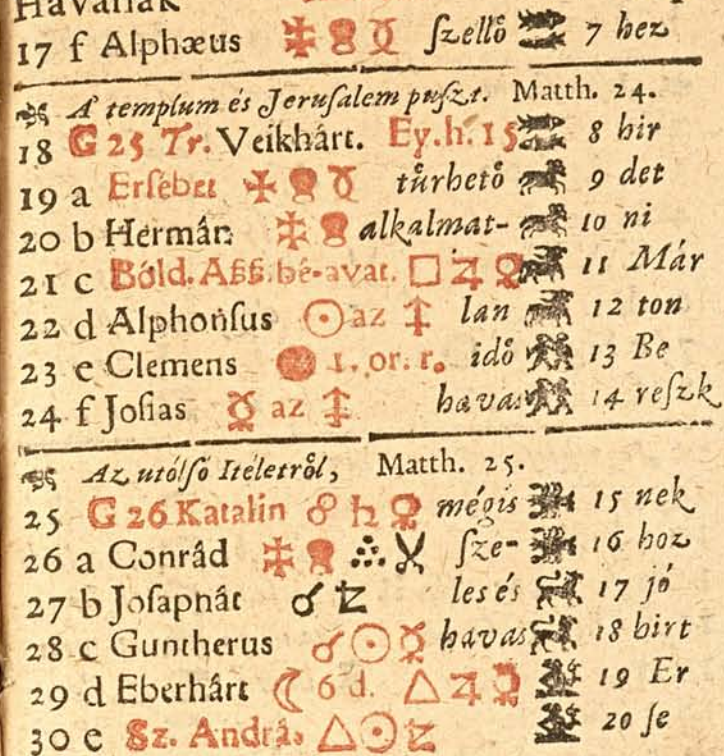 17 f Alphæus ſzellő 7 hez
A' templum és Jeruſalem puſzt. Matth. 24.
18 G 25 Tr. Veikhárt. Ey. h. 15 8 hir
19 a Erſébet tűrhető 9 det
20 b Hermán alkalmat- 10 ni
21 c Bóld. Aſſ. bé-avat. □ ♃ ♀ 11 Már
22 d Alphonſus ☉ az lan 12 ton
23 e Clemens 1. or. r. idő 13 Be
24 f Joſias ☿ az havas 14 reſzk
Az utólſó Itéletről, Matth. 25.
25 G 26 Katalin ☍ ♄ ♀ mégis 15 nek
26 a Conrád ſze- 16 hoz
27 b Joſaphát ☌ les és 17 jó
28 c Guntherus ☌ ☉ ☿ havas 18 hirt
29 d Eberhárt ☾ 6 d. △ ♃ ☿ 19 Er
30 e Sz. Andrá. △ ☉ 20 ſe